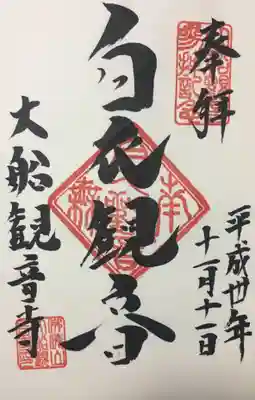 奉拝
平成卅年
十一月十一日
白衣観音
大船観音寺